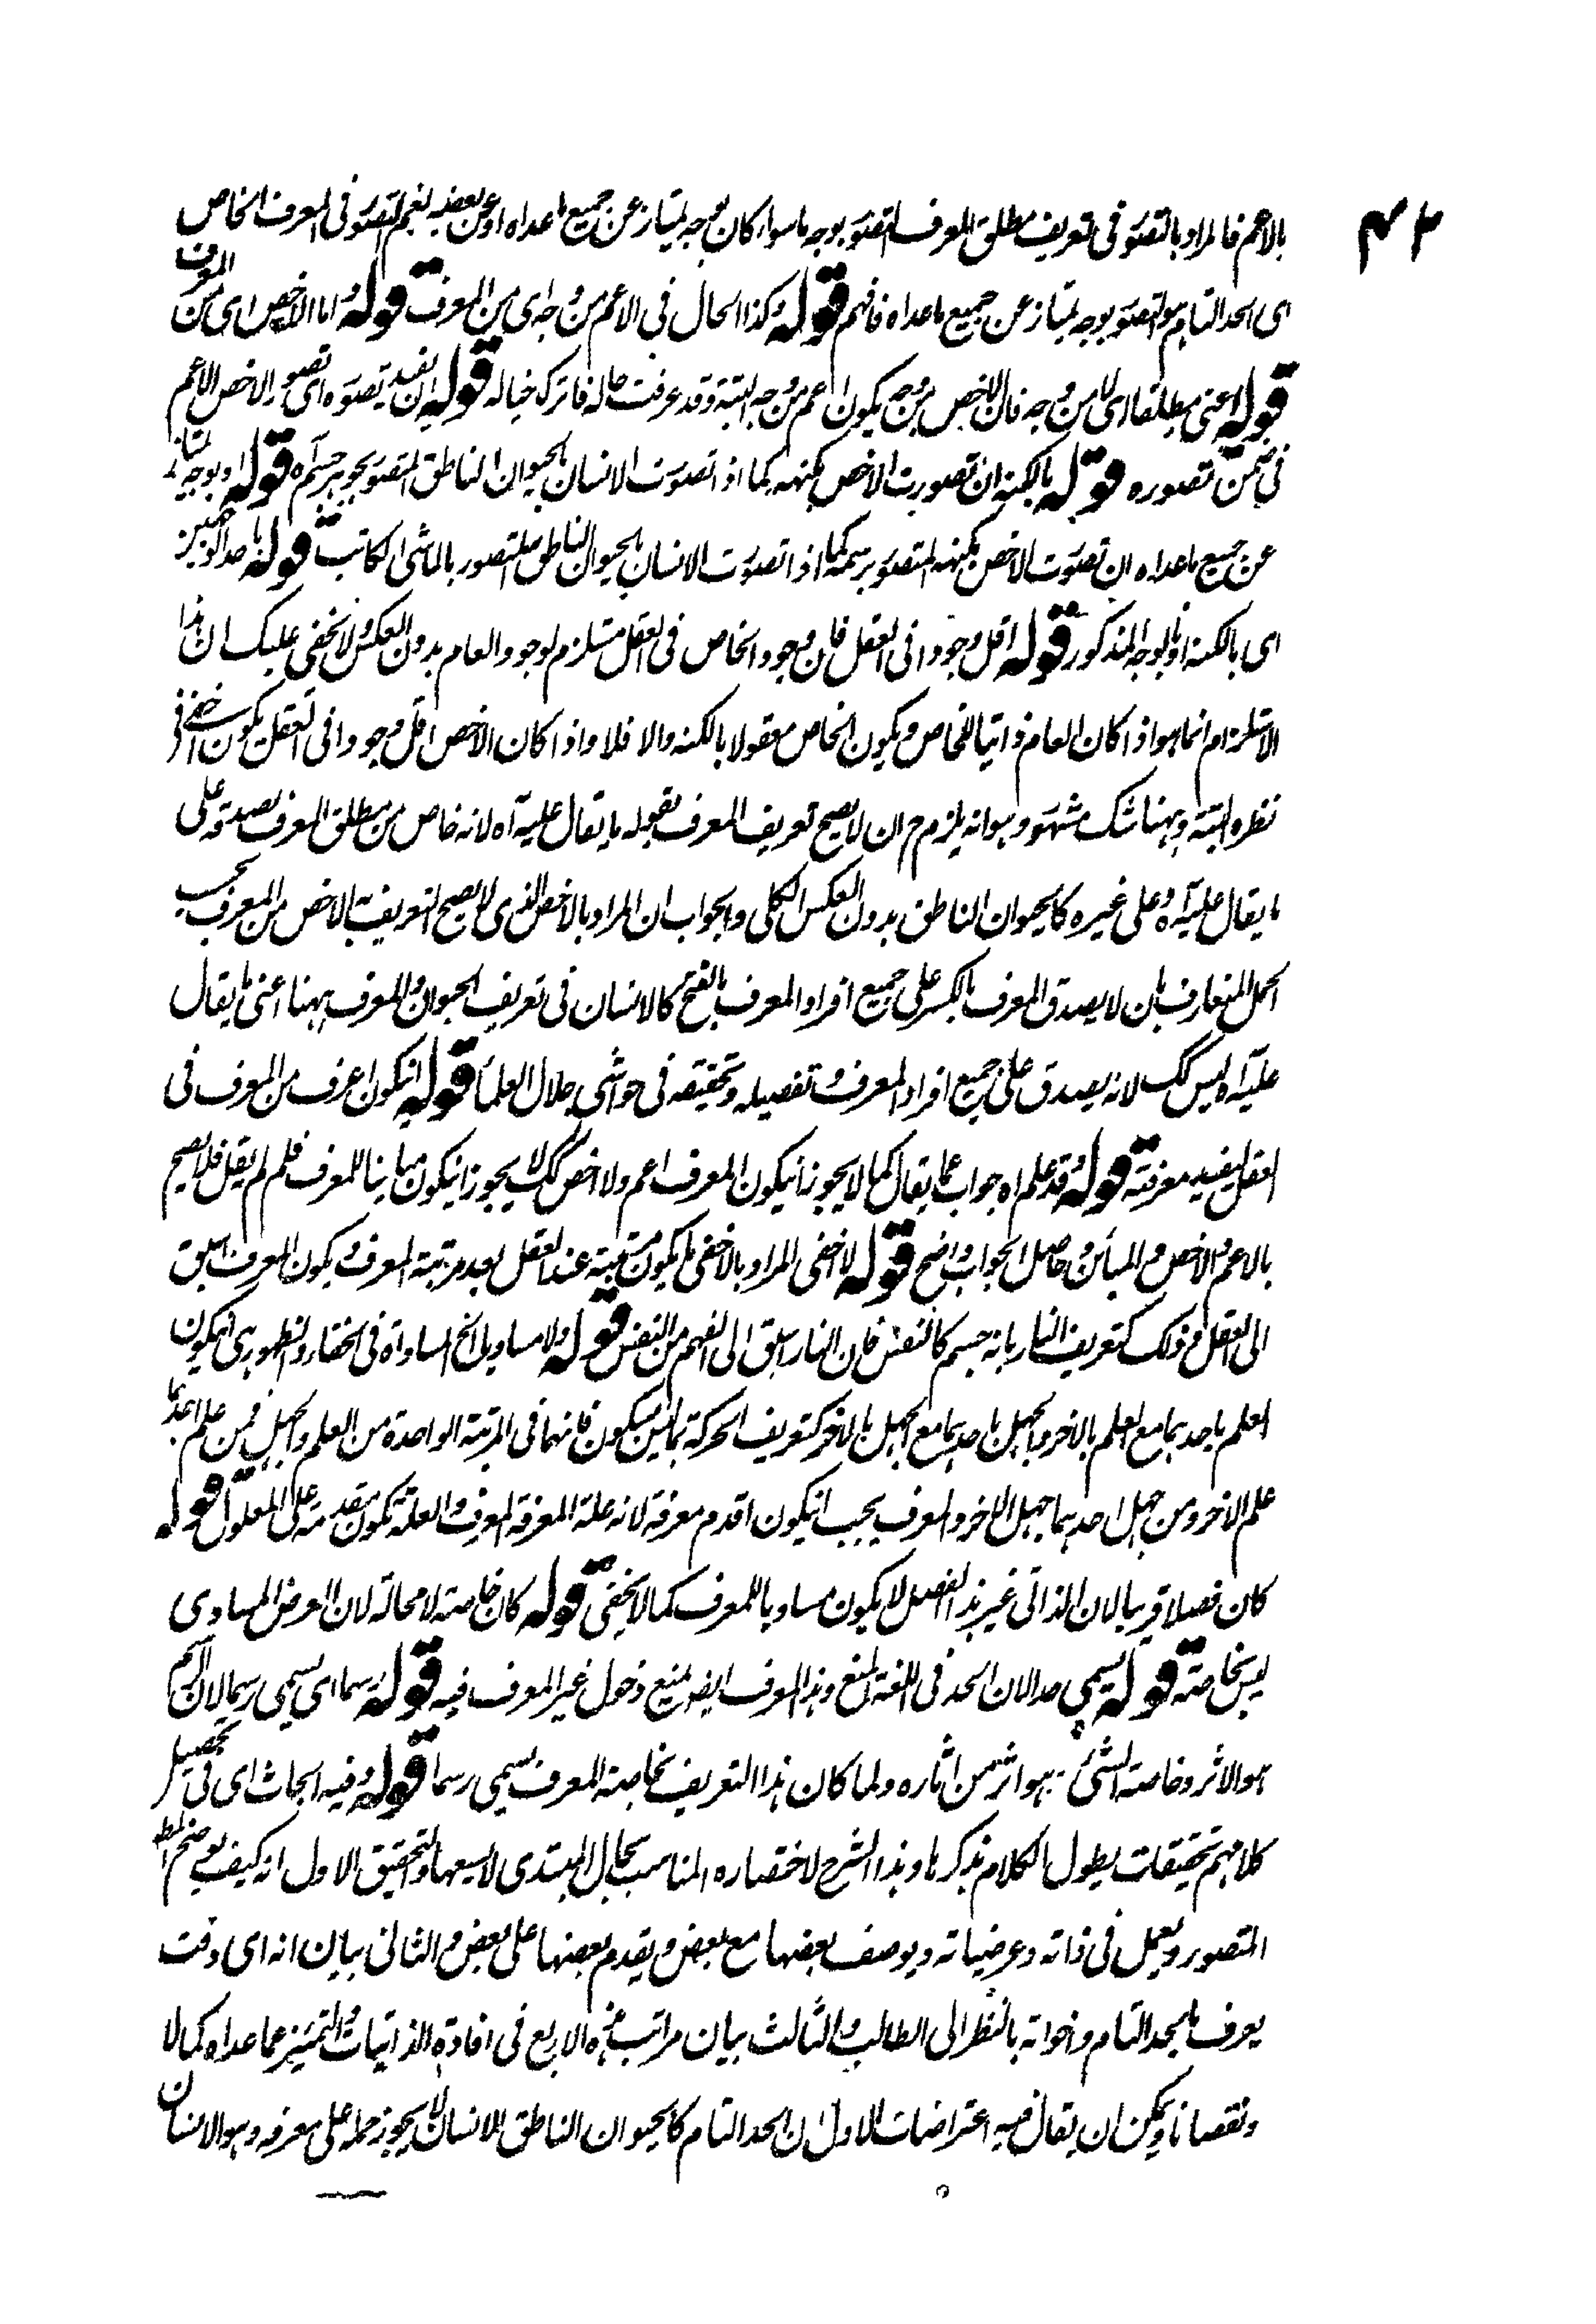 ٤٣
بالاعم فالمراد بالتصور فى تعريف مطلق المعرف التصور بوجه ما سواء كان بوجه يمتاز عن جميع ما عداه او عن بعضه نعم التصور فى المعرف الخاص
اى الحد التام هو التصور بوجه يمتاز عن جميع ما عداه فافهم قوله وكذا الحال فى الاعم من وجه اى من المعرف قوله واما الاخص اى من المعرف
قوله اعنى مطلقا اى لا من وجه فان الاخص من وجه يكون اعم من وجه البتة وقد عرفت حاله فاتركه خياله قوله ان يفيد تصوره اى تصور الاخص الاعم
فى ضمن تصوره قوله بالكنه ان تصورت الاخص بكنهه كما اذا تصورت الانسان بالحيوان الناطق المتصور بجوهر جسم آه قوله او بوجه يمتاز
عن جميع ما عداه ان تصورت الاخص بكنهه المتصور برسمه كما اذا تصورت الانسان بالحيوان الناطق المتصور بالماشى الكاتب قوله باحد الوجهين
اى بالكنه او بالوجه المذكور قوله اقل وجودا فى العقل فان وجود الخاص فى العقل مستلزم لوجود العام بدون العكس ولا يخفى عليك ان هذا
الاستلزام انما هو اذا كان العام ذاتيا للخاص ويكون الخاص معقولا بالكنه والا فلا واذا كان الاخص اقل وجودا فى العقل يكون اخفى فى
نظره البتة وههنا شك مشهور وهو انه يلزم ح ان لا يصح تعريف المعرف بقوله ما يقال عليه آه لانه خاص من مطلق المعرف لصدقه على
ما يقال عليه آه وعلى غيره كالحيوان الناطق بدون العكس الكلى والجواب ان المراد بالاخص الذى لا يصح التعريف به الاخص من المعرف بحسب
الحمل المتعارف بان لا يصدق المعرف بالكسر على جميع افراد المعرف بالفتح كالانسان فى تعريف الحيوان والمعرف ههنا اعنى ما يقال
عليه آه ليس كك لانه يصدق على جميع افراد المعرف وتفصيله وتحقيقه فى حواشى جلال العلماء قوله ان يكون اعرف من المعرف فى
العقل ليفيد معرفته قوله وقد علم اه جواب عما يقال كما لا يجوز ان يكون المعرف اعم ولا اخص كك لا يجوز ان يكون مباينا للمعرف فلم لم يقل فلا يصح
بالاعم والاخص والمباين وحاصل الجواب واضح قوله لا اخفى المراد بالاخفى ما يكون مرتبته عند العقل بعد مرتبة المعرف ويكون المعرف اسبق
الى العقل من ذلك كتعريف النار بانه جسم كالنفس فان النار اسبق الى الفهم من النفس قوله ولا مساو بل الخ المساواة فى الخفاء والظهور هى ان يكون
العلم باحدهما مع العلم بالاخر والجهل باحدهما مع الجهل بالاخر كتعريف الحركة بما ليس بسكون فانهما فى المرتبة الواحدة من العلم والجهل فمن علم احدهما
علم الاخر ومن جهل احدهما جهل الاخر والمعرف يجب ان يكون اقدم معرفة لانه علة المعرفة المعرف والعلة تكون متقدمة على المعلول قوله
كان فصلا قريبا لان الذاتى غير هذا الفصل لا يكون مساويا للمعرف كما لا يخفى قوله كان خاصة لا محالة لان العرض المساوى
ليس خاصته قوله يسمى حدا لان الحد فى اللغة المنع وهذا المعرف ايضا يمنع دخول غير المعرف فيه قوله رسما اى يسمى رسما لان الرسم
هو الاثر وخاصة الشئ هو اثر من اثاره ولما كان هذا التعريف بخاصة المعرف يسمى رسما قوله وفيه ابحاث اى فى تحصيل
كلامهم تحقيقات يطول الكلام بذكرها وهذا الشرح لاختصاره المناسب بحال المبتدى لا يسعها والتحقيق الاول انه كيف يوضع المط
المتصور ويعمل فى ذاته وعرضياته ويوصف بعضها مع بعض ويقدم بعضها على بعض والثانى بيان انه اى وقت
يعرف بالحد التام واخواته بالنظر الى الطالب والثالث بيان مراتب هذه الاربع فى افادة الذاتيات والتمييز عما عداه كمالا
ونقصانا ويمكن ان يقال فيه اعتراضات الاول ان الحد التام كالحيوان الناطق للانسان لا يجوز حمله على معرفه وهو الانسان